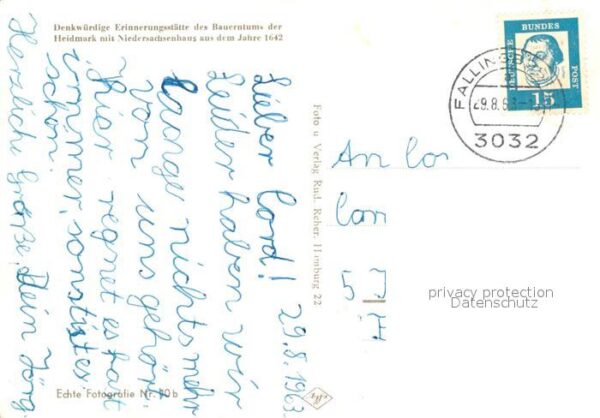 Denkwürdige Erinnerungsstätte des Bauerntums der
Heidmark mit Niedersachsenhaus aus dem Jahre 1642
29.8.1963
Lieber Cord!
Leider haben wir
lange nichts mehr
von uns gehört.
Hier regnet es fast
immer, sonst ist es
schön.
Herzliche Grüße Dein Jörg
Foto u Verlag Rud. Reher, Hamburg 22
Echte Fotografie Nr. 10 b
Agfa
DEUTSCHE
BUNDES
POST
15
FALLING
29.8.63
3032
An
5
privacy protection
Datenschutz